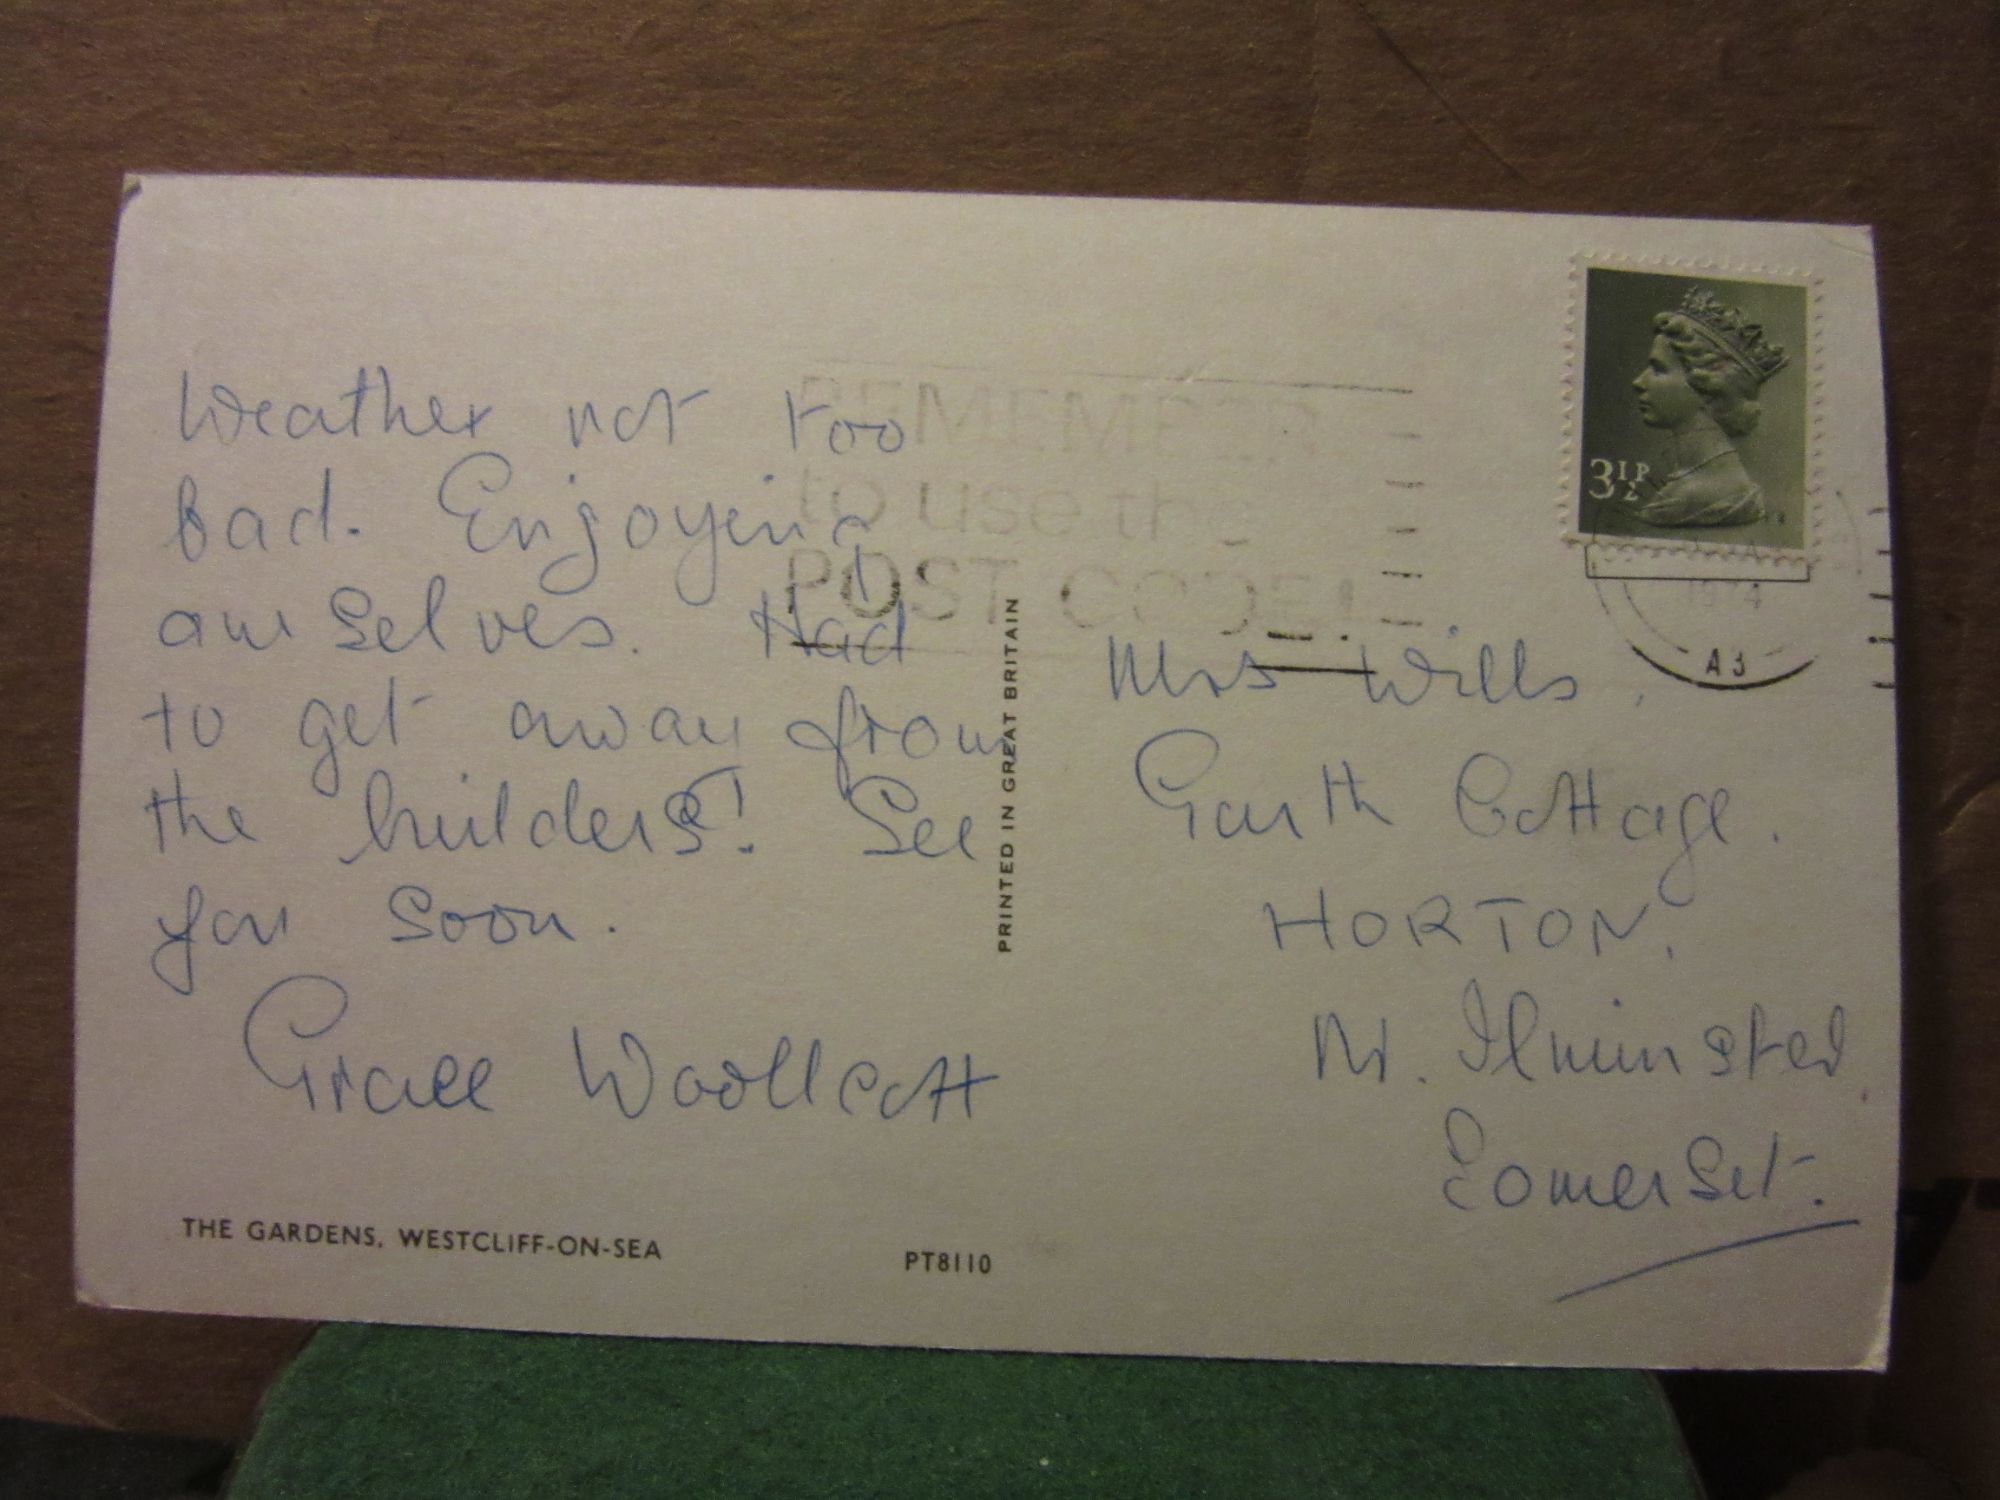 Weather not too
bad. Enjoying
ourselves. Had
to get away from
the builders! See
you soon.
Grace Woollcott
THE GARDENS, WESTCLIFF-ON-SEA
PT8110
PRINTED IN GREAT BRITAIN
REMEMBER
to use the
POST CODE!
3½P
1974
A3
Mrs Wills,
Garth Cottage.
HORTON,
Nr. Ilminster
Somerset.